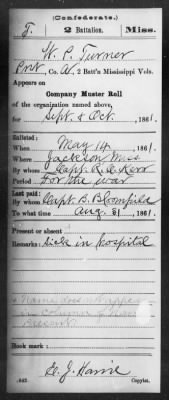 (Confederate.)
T. 2 Battalion. Miss.
W. P. Turner
Pvt, Co. A, 2 Batt'n Mississippi Vols.
Appears on
Company Muster Roll
of the organization named above,
for Sept & Oct, 1861.
Enlisted:
When May 14, 1861.
Where Jackson Miss
By whom Capt. R. A.
Period For the war
Last paid:
By whom Capt. B. B. Bloomfield
To what time Aug. 31, 1861.
Present or absent
Remarks: Sick in hospital
Name does not appear
in column of Names
Present
Book mark:
(642) Copyist.